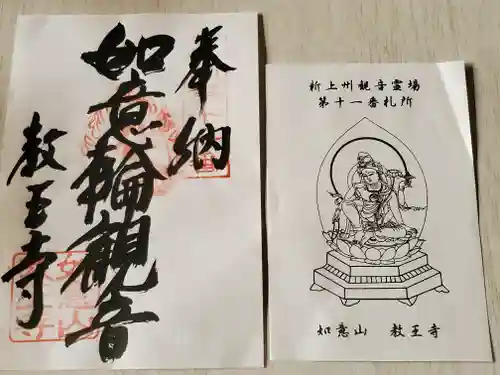 奉納
如意輪観音
教王寺
新上州観音霊場
第十一番札所
如意山 教王寺